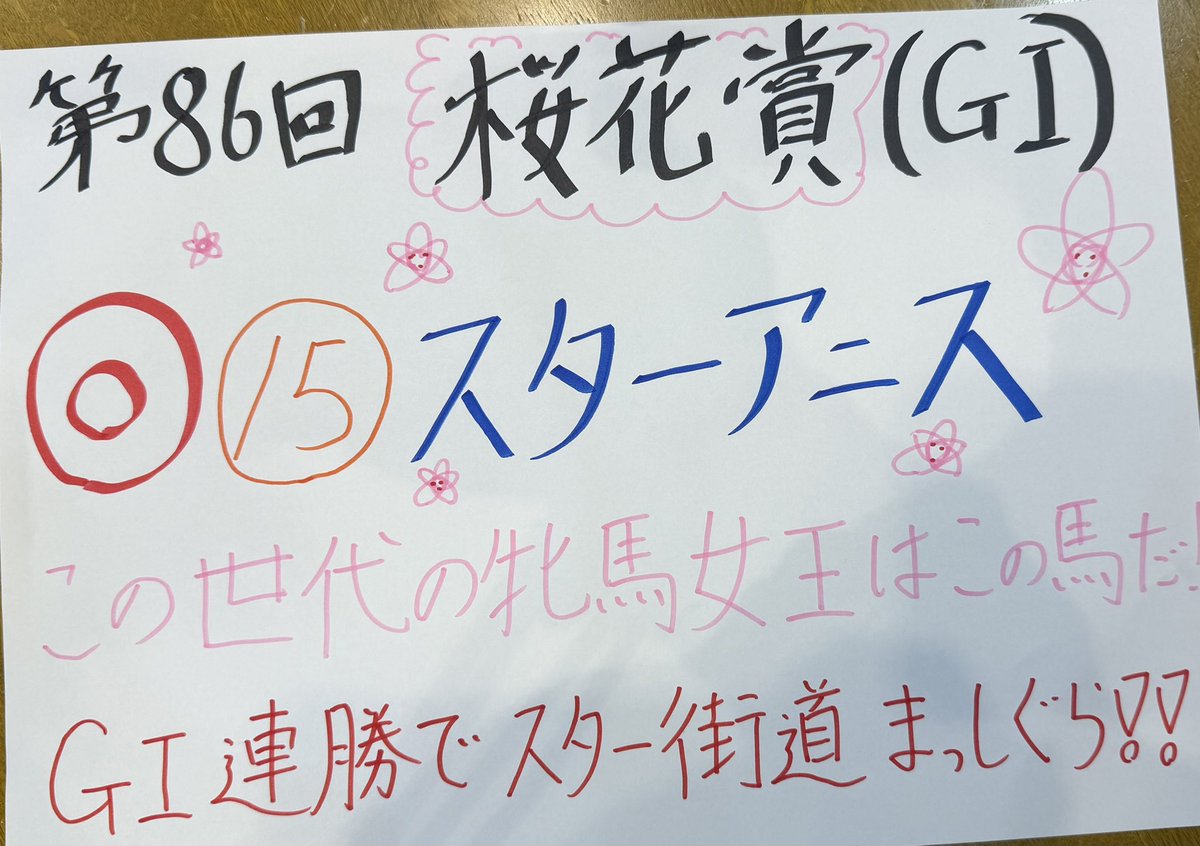 第86回 桜花賞(GI)
◎ ⑮ スターアニス
この世代の牝馬女王はこの馬だ!
GI連勝でスター街道まっしぐら!!